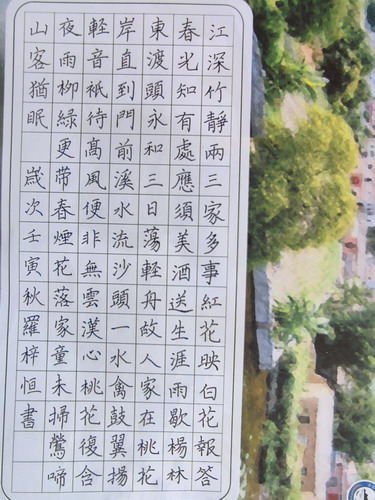 江深竹靜兩三家多事紅花映白花報答
春光知有處應須美酒送生涯雨歇楊林
東渡頭永和三日蕩輕舟故人家在桃花
岸直到門前溪水流沙頭一水禽鼓翼揚
輕音衹待髙風便非無雲漢心桃花復含
夜雨柳綠更帶春煙花落家童未掃鶯啼
山客猶眠 嵗次壬寅秋羅梓恒書